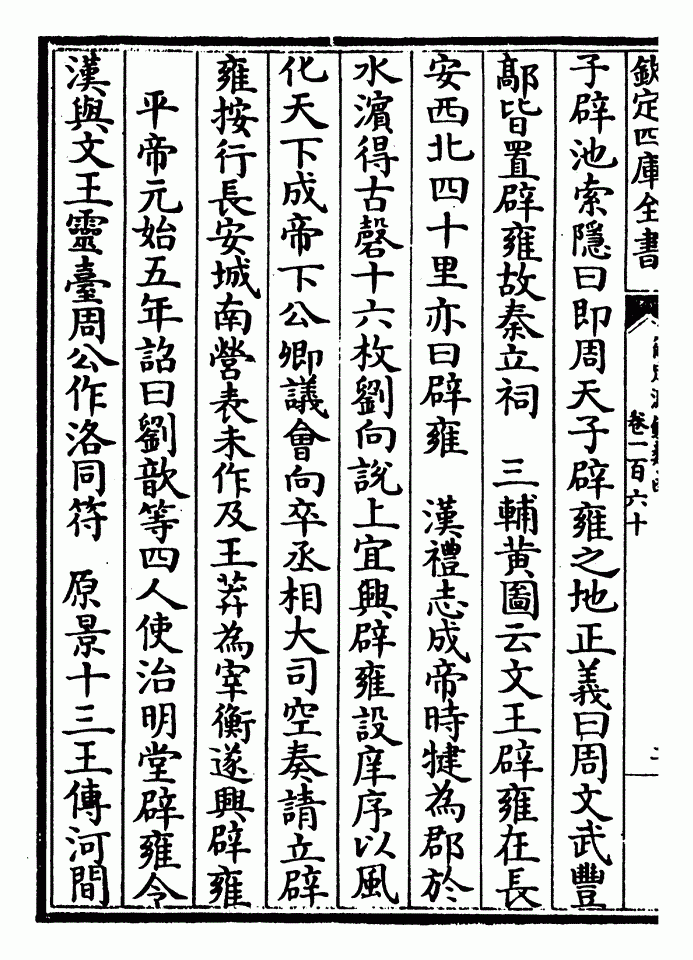 欽定四庫全書
卷一百六十
子辟池索隱曰即周天子辟雍之地正義曰周文武豐
鄗皆置辟雍故秦立祠　三輔黄圖云文王辟雍在長
安西北四十里亦曰辟雍　漢禮志成帝時犍為郡於
水濵得古磬十六枚劉向說上宜興辟雍設庠序以風
化天下成帝下公卿議會向卒丞相大司空奏請立辟
雍按行長安城南營表未作及王莽為宰衡遂興辟雍
平帝元始五年詔曰劉歆等四人使治明堂辟雍令
漢與文王靈臺周公作洛同符　原景十三王傳河間